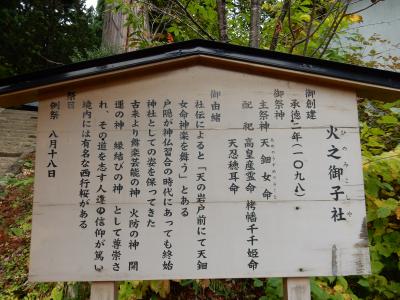 火之御子社
ひのみこしゃ
御創建
承徳二年(一〇九八)
御祭神
主祭神 天鈿女命
配祀 高皇産霊命 栲幡千千姫命
天忍穂耳命
御由緒
社伝によると「天の岩戸前にて天鈿
女命神楽を舞う」とある
戸隠が神仏習合の時代にあっても終始
神社としての姿を保ってきた
古来より舞楽芸能の神 火防の神 開
運の神 縁結びの神 として尊崇さ
れ、その道を志す人達の信仰が篤い
境内には有名な西行桜がある
祭日
例祭 八月十八日